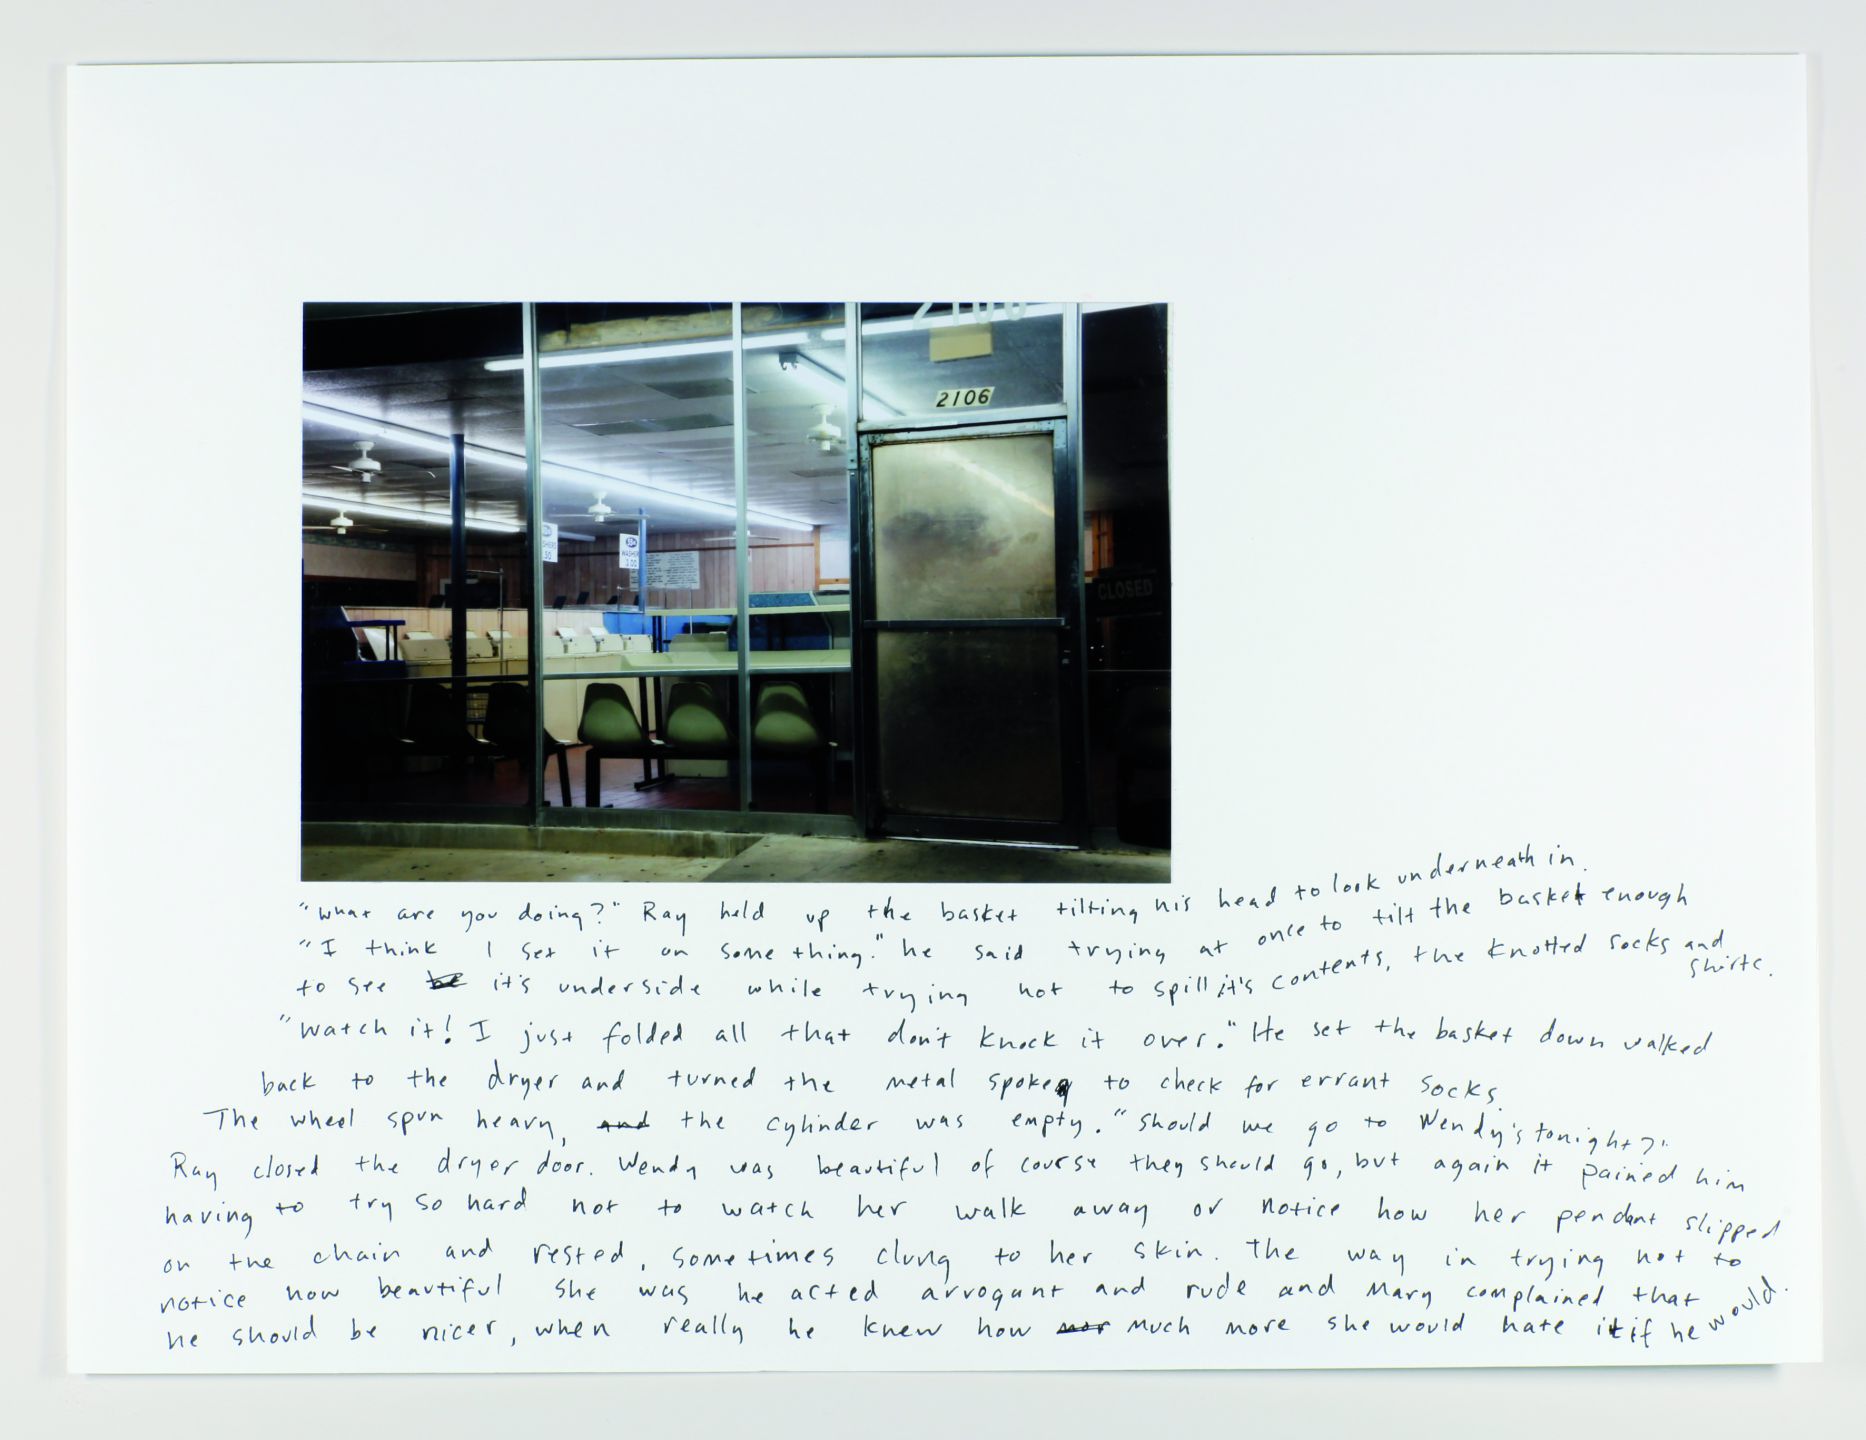 2106
2106
WASHER
3.00
CLOSED
"What are you doing?" Ray held up the basket tilting his head to look underneath in.
"I think I set it on something." he said trying at once to tilt the basket enough
to see be it's underside while trying not to spill it's contents, the knotted socks and shirts.
"Watch it! I just folded all that don't knock it over." He set the basket down walked
back to the dryer and turned the metal spoke to check for errant socks.
The wheel spun heavy, and the cylinder was empty. "Should we go to Wendy's tonight?"
Ray closed the dryer door. Wendy was beautiful of course they should go, but again it pained him
having to try so hard not to watch her walk away or notice how her pendant slipped
on the chain and rested, sometimes clung to her skin. The way in trying not to
notice how beautiful she was he acted arrogant and rude and Mary complained that
he should be nicer, when really he knew how much more she would hate it if he would.